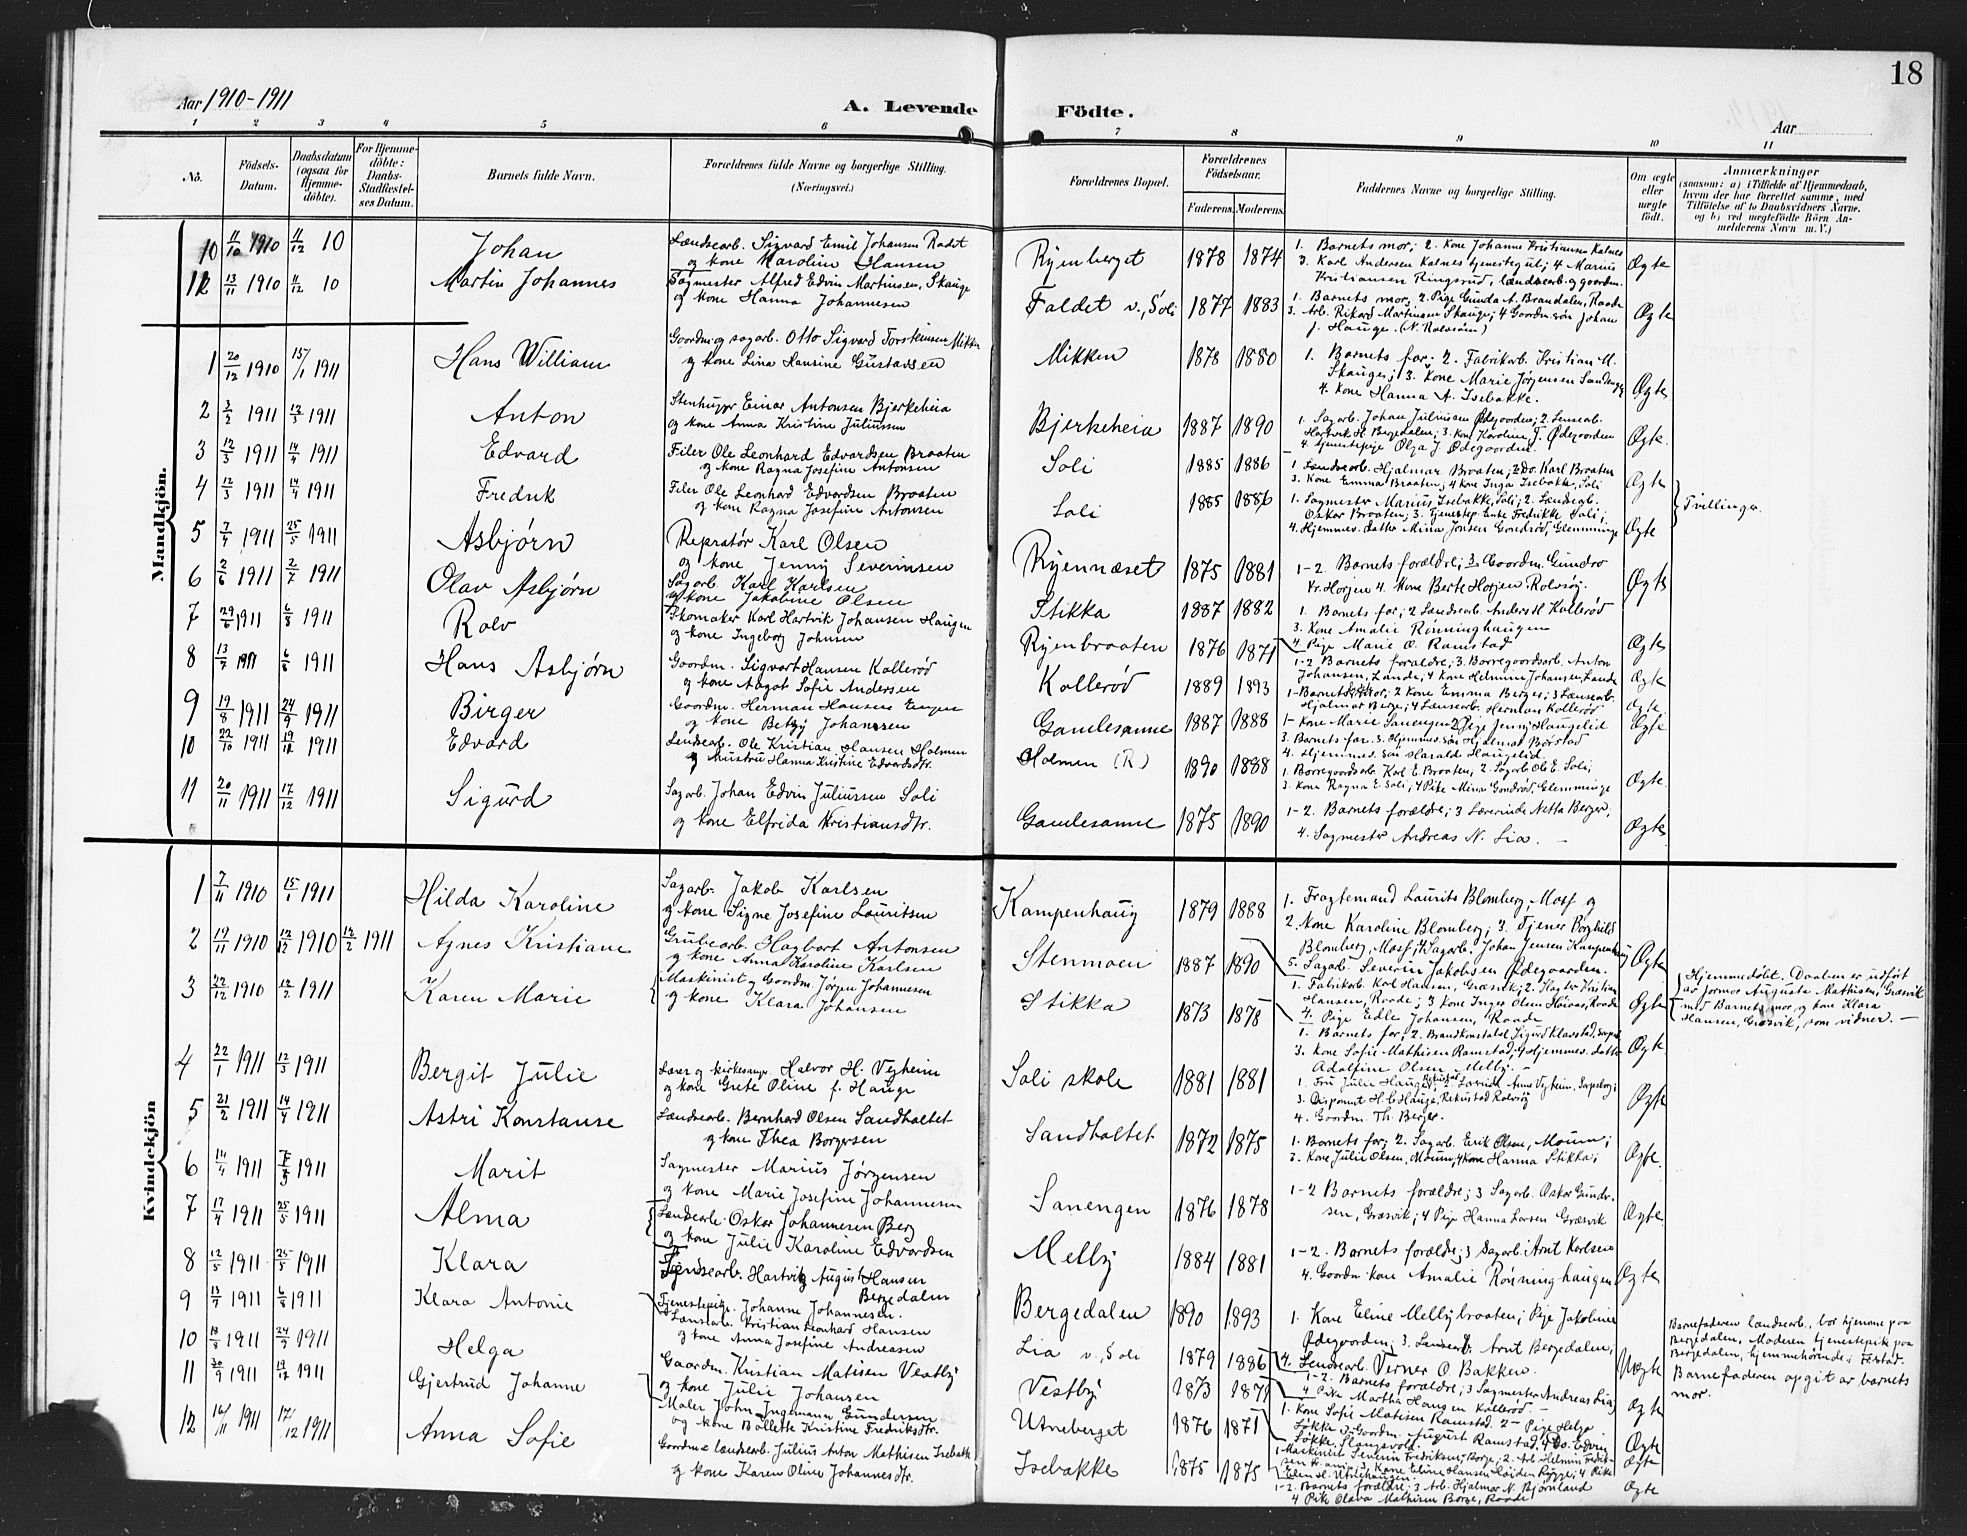 18
Aar 1910-1911
A. Levende Födte.
Aar
1 2 3 4 5 6 7 8 9 10 11
No.
Födsels-Datum.
Daabsdatum (ogsaa for Hjemme-döbte).
For Hjemme-döbte: Daabs-Stadfæstel-ses Datum.
Barnets fulde Navn.
Forældrenes fulde Navne og borgerlige Stilling. (Næringsvei.)
Forældrenes Bopæl.
Forældrenes Födselsaar.
Faderens. Moderens.
Faddernes Navne og borgerlige Stilling.
Om ægte eller uægte födt.
Anmærkninger
(saasom: a) i Tilfælde af Hjemmedaab, hvem der har forrettet samme, med Tilföielse af to Daabsvidners Navne. og b) ved uægtefödte Börn An-melderens Navn m. V.)
Mandkjön.
10 11/10 1910 11/12 10 Johan
Landsearb. Sigvard Emil Johansen Rodet
og kone Karoline Hansen
Ryenberget 1878 1874
1. Barnets mor; 2. Kone Johanne Kristiansen Kalnes
3. Karl Andersen Kalnes tjenestegut; 4 Marius
Kristiansen Ringsrud, landsearb. og goordm.
Ægte
11 13/11 1910 11/12 10 Martin Johannes
Sagmester Alfred Edvin Martinsen, Skauge
og kone Hanna Johannesen
Faldet v., Soli 1877 1883
1. Barnets mor; 2 Pige Gunda A. Brandalen, Raade
3. Arb. Rikard Martinsen Skauge; 4 Goordm. søn Johan
J. Hauge. (N. Rolvsøen)
Ægte
1 20/12 1910 15/1 1911 Hans William
Goordm. og sagarb. Otto Sigvard Torsteinsen Mikken
og kone Lina Hansine Gustavsen
Mikken 1878 1880
1. Barnets far; 2. Fabrikarb. Kristian M.
Skauge; 3. Kone Marie Jørgensen
4. Kone Hanna A. Isebakke.
Ægte
2 3/2 1911 12/3 1911 Anton
Stenhugger Einar Antonsen Bjerkeheia
og kone Anna Kristine Juliussen
Bjerkeheia 1887 1890
1. Sagarb. Johan Juliussen Ødegaarden; 2. Lenseab.
Hartvik H. Bergedalen; 3. Kone Karoline J. Ødegaarden
4. tjenestepige Olga J. Ødegaarden.
Ægte.
3 12/3 1911 14/4 1911 Edvard
Filer Ole Leonhard Edvardsen Braaten
og kone Ragna Josefine Antonsen
Soli 1885 1886
1 Landsearb. Hjalmar Braaten; 2 Do. Karl Braaten
3. Kone Emma Braaten; 4 kone Inga Isebakke, Soli
Ægte
4 12/3 1911 14/4 1911 Fredrik
Filer Ole Leonhard Edvardsen Braaten
og kone Ragna Josefine Antonsen
Soli 1885 1886
1. Sagmester Marius Isebakke, Soli; 2. Landsearb.
Oskar Braaten; 3. Tjenestep. Ente Fredrikke Soli;
4. Hjemmev. datter Mina Jonsen Gondrød, Glemminge
Ægte
Tvillinger.
5 7/4 1911 25/5 1911 Asbjørn
Repratør Karl Olsen
og kone Jenny Severinsen
Ryennæset 1875 1881
1-2. Barnets forældre; 3. Goordm. Gundro
Kr. Horjen 4. Kone Berte Horjen Rolvsøy.
Ægte
6 2/6 1911 2/7 1911 Olav Asbjørn
Sagarb. Karl Karlsen
og kone Jakobine Olsen
Stikka 1887 1882
1. Barnets far; 2 Landsearb. Anders H Kollerød
3. Kone Amalie Rønninghaugen
4 Pige Marie O. Ramstad
Ægte
7 29/6 1911 6/8 1911 Rolv
Skomaker Karl Hartvik Johansen Haugen
og kone Ingeborg Johnsen
Ryenbraaten 1876 1871
1-2 Barnets forældre; 3. Borregaardsarb. Anton
Johansen, Lande; 4 kone Helmine Johansen, Lande
Ægte
8 13/7 1911 6/8 1911 Hans Asbjørn
Goordm. Sigvart Hansen Kollerød
og kone Aagot Sofie Andersen
Kollerød 1889 1893
1- Barnets mor; 2 kone Emma Berger; 3 Lensearb.
Hjalmar Berge; 4 Lensearb. Herman Kollerød
Ægte
9 19/8 1911 24/9 1911 Birger
Goordm. Herman Hansen
og kone Betzy Johannesen
Gamlesanne 1887 1888
1- Kone Marie Sanengen 2 Pige Jenny Haugelid
3. Barnets far 3. Hjemmev. søn Hjalmar Børstad
4. Hjemmev. søn Harald Haugelid.
Ægte
10 22/10 1911 19/12 1911 Edvard
Lendsearb. Ole Kristian Hansen Holmen
og hustru Hanna Kristine Edvardsdtr.
Holmen (R.) 1890 1888
1. Borregaardsarb. Karl E. Braaten; 2. Sagarb Ole E. Soli;
3. Kone Ragna E. Soli; 4 Pike Mina Gondrød, Glemminge
Ægte.
11 20/11 1911 17/12 1911 Sigurd
Sagarb. Johan Edvin Juliussen Soli
og kone Elfrida Kristiansdtr.
Gamlesanne 1875 1890
1-2. Barnets forældre; 3 Lærerinde Netta Berger;
4. Sagmester Andreas N. Lia. —
Ægte
Kvindekjön
1 7/11 1910 15/1 1911 Hilda Karoline
Sagarb. Jakob Karlsen
og kone Signe Josefine Lauritsen
Kampenhaug 1879 1888
1. Fragtemand Laurits Blomberg, Moss og
2. Kone Karoline Blomberg; 3. Tjener Borghild
Blomberg, Moss; 4. Sagarb. Johan Jensen Kampenhaug
5. Sagarb. Severin Jakobsen Ødegaarden.
Ægte
2 19/11 1910 12/12 1910 12/2 1911 Agnes Kristiane
Grubearb. Hagbart Antonsen
og kone Anna Karoline Karlsen
Stenmoen 1887 1890
1. Fabrikarb. Karl Hansen, Græsvik; 2. Kristian
Hansen, Raade; 3 kone Inger Olsen Raade
4. Pige Edle Johansen, Raade
Ægte
Hjemmedøbt. Daaben er udført
av jormor Augusta Mathisen, Græsvik
med Barnets mor og kone Klara
Hansen, Græsvik, som vidner. —
3 22/12 1910 12/2 1911 Karen Marie
Maskinist og Goordm. Jørgen Johannesen
og kone Klara Johansen
Stikka 1873 1878
1. Barnets far; 2. Brandkonstabel Sigurd Klavestad,
3. Kone Sofie Mathisen Ramstad; 4 Hjemmev. datter
Adolfine Olsen Melby. —
Ægte
4 22/1 1911 12/3 1911 Bergit Julie
Lærer og kirkesanger Halvor H. Vegheim
og kone Grete Oline f. Hauge
Soli skole 1881 1881
1. Fru Julie Hauge, Rekustad; 2 Lærerinde Anne Vegheim, Sarpsborg;
3. Disponent H. C. Hauge, Rekustad Rolvsøy
4. Goordm. Th. Berger.
Ægte
5 21/2 1911 14/4 1911 Astri Konstanse
Landsearb. Bernhard Olsen Sandholtet
og kone Thea Borgersen
Sandholtet 1872 1875
1. Barnets far; 2. Sagarb. Erik Olsen, Moum;
3. Kone Julie Olsen, Moum; 4 kone Hanna Stikka;
Ægte.
6 14/4 1911 1911 Marit
Sagmester Marius Jørgensen
og kone Marie Josefine Johannesen
Sanengen 1876 1878
1-2 Barnets forældre; 3 Sagarb. Oskar Gundr-
sen, Græsvik; 4 Pige Hanna Larsen Græsvik
Ægte.
7 17/4 1911 25/5 1911 Alma
Landsearb. Oskar Johannesen Berg
og kone Julie Karoline Edvardsen
Melby 1884 1881
1-2. Barnets forældre; 3 Sagarb. Arnt Karlsen
4. Goordm. kone Amalie Rønninghaugen
Ægte
8 12/5 1911 25/5 1911 Klara
Lensearb. Hartvig August Hansen
Bergedalen
Tjenestepige Johanne Johannesen.
Bergedalen 1890 1893
1. Kone Eline Mellybraaten; Pige Jakobine
Ødegaarden; 3. Landsearb Arnt Bergedalen,
4. Lendsearb. Verner O. Bakken.
Uægte
Barnefaderen landsearb., bor hjemme paa
Bergedalen, Moderen tjenestepike paa
Bergedalen, hjemmehørende i
Barnefaderen opgit av barnets
mor.
9 13/7 1911 6/8 1911 Klara Antonie
Lensearb. Kristian Leonhard Hansen
og kone Anna Josefine Andreasen
Lia v., Soli 1879 1886
1-2. Barnets forældre; 3 Sagmester Andreas Lia;
4 Pike Martha Haugen Kollerød. —
Ægte
10 18/8 1911 24/9 1911 Helga
Gaardm. Kristian Matisen Vestby
og kone Julie Johansen
Vestby 1873 1871
1. Kone Sofie Matisen Ramstad. 2— Pige Helga
Løkke 3. Goordm. August Ramstad. 4 Do. Edvin
Løkke, Slangsvold.
Ægte
11 20/9 1911 19/12 1911 Gjertrud Johanne
Maler John Ingemann Gundersen
og kone Bollette Kristine Fredriksdtr.
Utneberget 1876 1871
1 Maskinist Severin Fredriksen, Borge; 2. Arb. Helmin Fredrik-
sen 3. Kone Eline Hansen Rygge; 4 Pike
Elen H. Utnehaugen.
Ægte
12 16/11 1911 17/12 1911 Anna Sofie
Goordm. & landsearb. Julius Anton Mathisen Isebakke
og kone Karen Oline Johannesdtr.
Isebakke 1875 1875
1-2. Barnets forældre; 3 Arb. Hjalmar N. Bjørnland
4 Pike Olava Mathisen Borge, Raade
Ægte